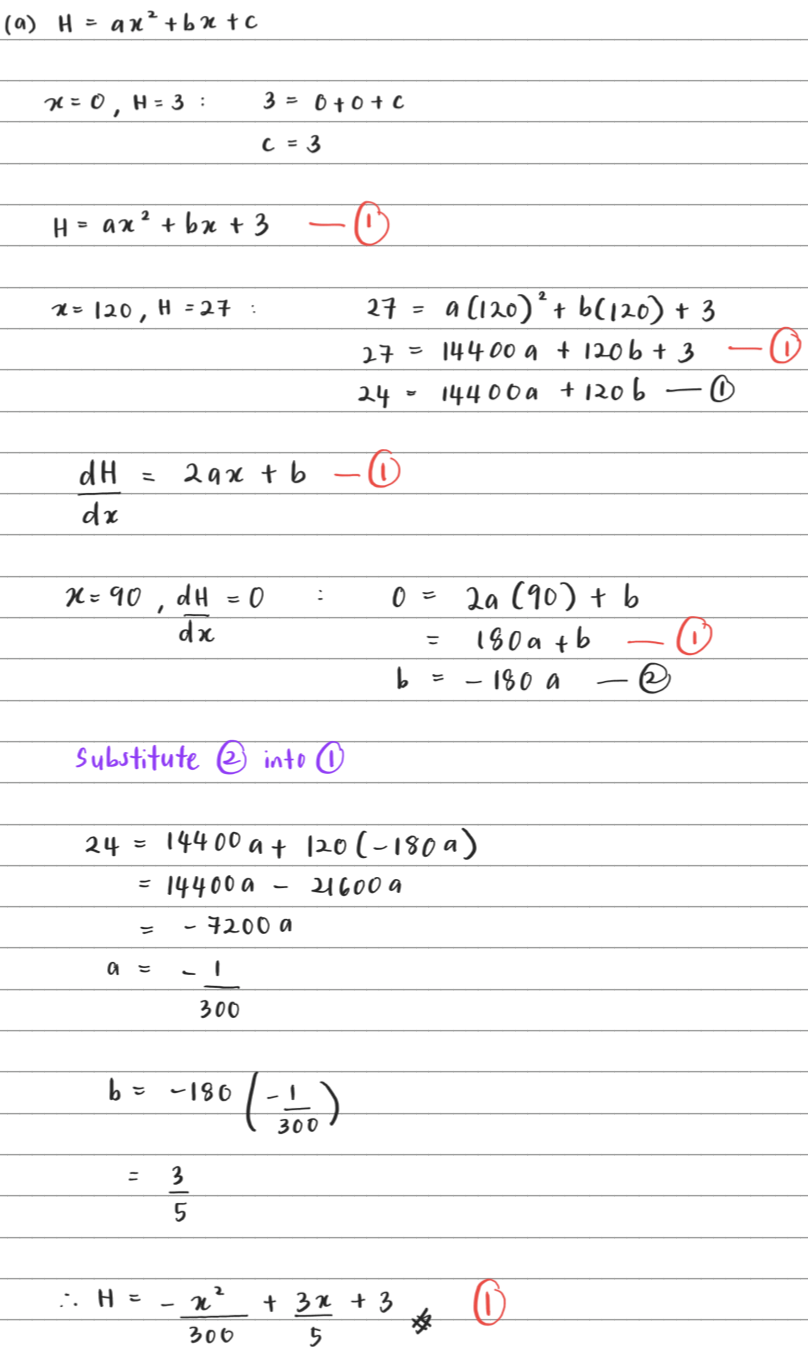 (a) H = ax² + bx + c
x = 0 , H = 3 : 3 = 0 + 0 + c
c = 3
H = ax² + bx + 3 — ①
x = 120 , H = 27 : 27 = a(120)² + b(120) + 3
27 = 14400a + 120b + 3 — ①
24 = 14400a + 120b — ①
dH/dx = 2ax + b — ①
x = 90 , dH/dx = 0 : 0 = 2a(90) + b
= 180a + b — ①
b = -180a — ②
Substitute ② into ①
24 = 14400a + 120(-180a)
= 14400a - 21600a
= -7200a
a = -1/300
b = -180(-1/300)
= 3/5
∴ H = -x²/300 + 3x/5 + 3 ①